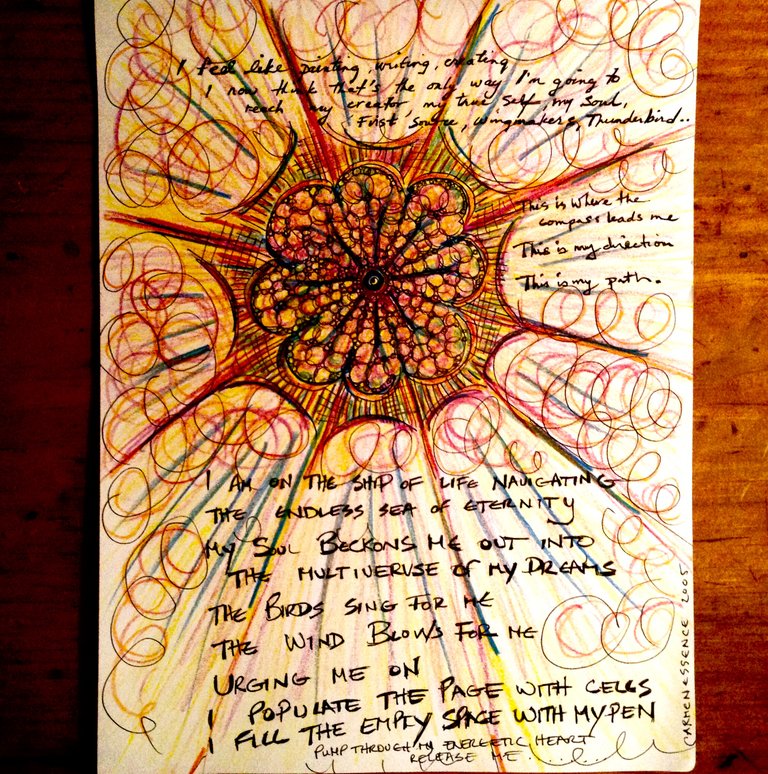 I feel like painting, writing, creating
I now think that's the only way I'm going to
reach my creator my true self, my soul,
First source, wingmakers, Thunderbird..
This is where the
compass leads me
This is my direction
This is my path.
I AM ON THE SHIP OF LIFE NAVIGATING
THE ENDLESS SEA OF ETERNITY
MY SOUL BECKONS ME OUT INTO
THE MULTIVERUSE OF MY DREAMS
THE BIRDS SING FOR ME
THE WIND BLOWS FOR ME
URGING ME ON
I POPULATE THE PAGE WITH CELLS
I FILL THE EMPTY SPACE WITH MY PEN
PUMP THROUGH MY ENERGETIC HEART
RELEASE ME......
CARMEN ESSENCE 2005